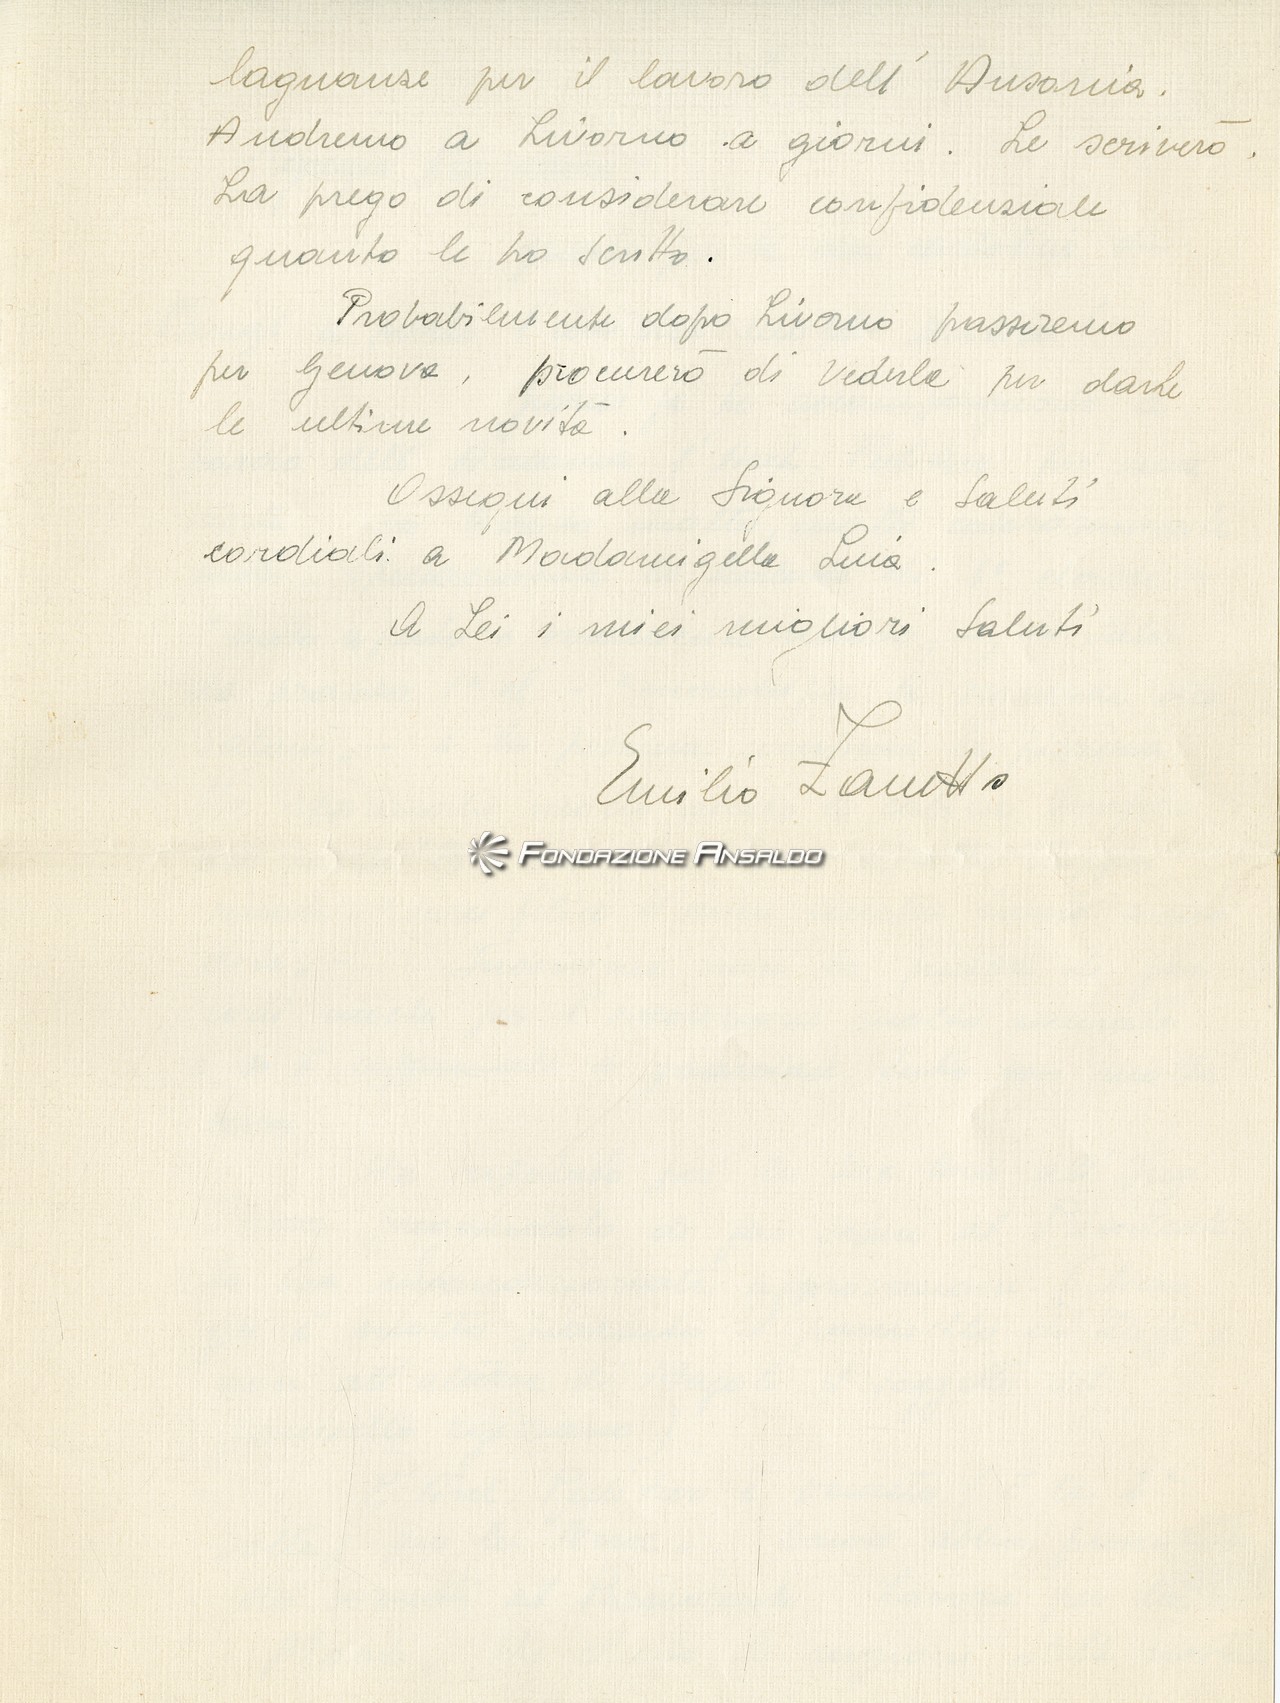 lagnanze per il lavoro dell' Ausonia.
Andremo a Livorno a giorni. Le scriverò.
La prego di considerare confidenziale
quanto le ho scritto.
Probabilmente dopo Livorno passeremo
per Genova, procurerò di vederla per darLe
le ultime novità.
Ossequi alla Signora e saluti
cordiali a Madamigella Luia.
A Lei i miei migliori saluti
Emilio Zanotto
FONDAZIONE ANSALDO